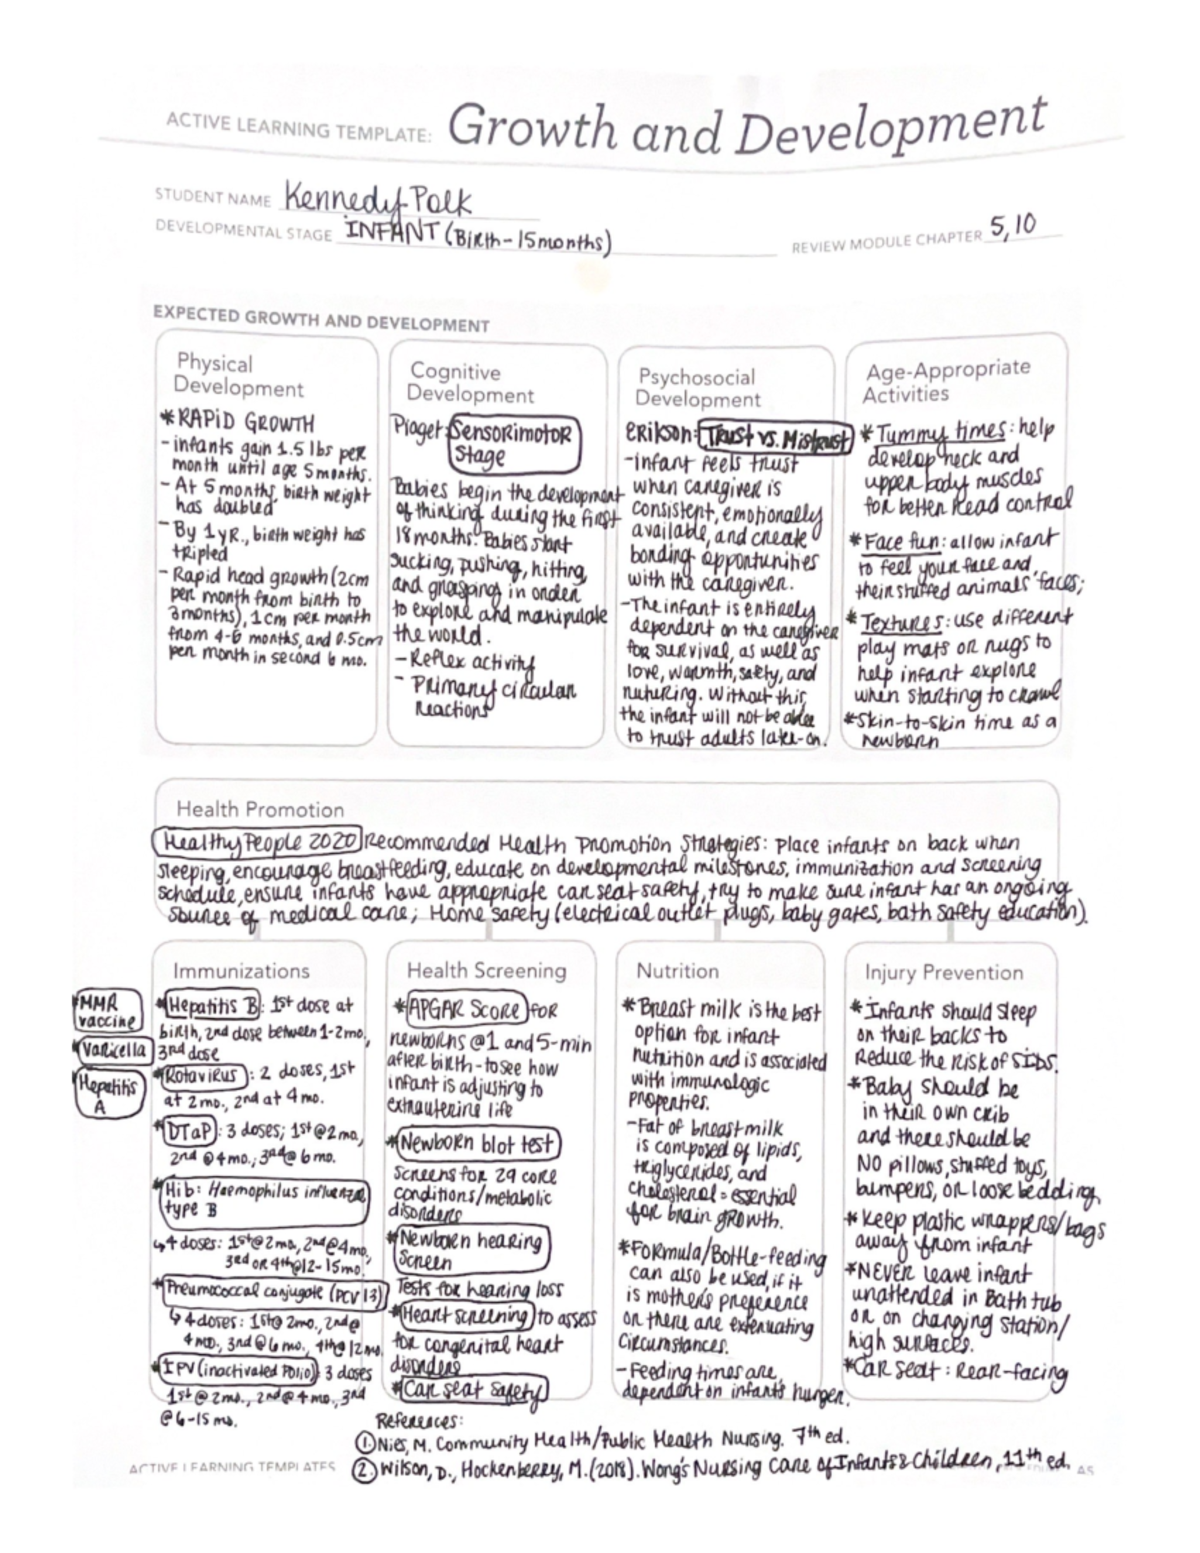 ACTIVE LEARNING TEMPLATE: Growth and Development
STUDENT NAME Kennedy Polk
DEVELOPMENTAL STAGE INFANT (Birth-15months)
REVIEW MODULE CHAPTER 5, 10
EXPECTED GROWTH AND DEVELOPMENT
Physical
Development
*RAPID GROWTH
- infants gain 1.5 lbs per
month until age 5 months.
- At 5 months, birth weight
has doubled
- By 1 yR., birth weight has
tripled
- Rapid head growth (2cm
per month from birth to
3 months), 1 cm per month
from 4-6 months, and 0.5cm
per month in second 6 mo.
Cognitive
Development
Piaget: Sensorimotor
Stage
Babies begin the development
of thinking during the first
18 months. Babies start
sucking, pushing, hitting,
and grasping in order
to explore and manipulate
the world.
- Reflex activity
- Primary circular
Reactions
Psychosocial
Development
Erikson: Trust vs. Mistrust
- infant feels trust
when caregiver is
consistent, emotionally
available, and create
bonding opportunities
with the caregiver.
- The infant is entirely
dependent on the caregiver
for survival, as well as
love, warmth, safety, and
nuturing. Without this,
the infant will not be able
to trust adults later-on.
Age-Appropriate
Activities
*Tummy times: help
develop neck and
upper body muscles
for better head control
*Face fun: allow infant
to feel your face and
their stuffed animals' faces;
*Textures: use different
play mats or rugs to
help infant explore
when starting to crawl
*Skin-to-skin time as a
newborn
Health Promotion
Healthy People 2020 Recommended Health Promotion Strategies: Place infants on back when
sleeping, encourage breastfeeding, educate on developmental milestones, immunization and screening
schedule, ensure infants have appropriate car seat safety, try to make sure infant has an ongoing
source of medical care; Home safety (electrical outlet plugs, baby gates, bath safety education).
*MMR
vaccine
*Varicella
*Hepatitis
A
Immunizations
*Hepatitis B: 1st dose at
birth, 2nd dose between 1-2mo,
3rd dose
*Rotavirus: 2 doses, 1st
at 2 mo., 2nd at 4 mo.
*DTaP: 3 doses; 1st @ 2mo,
2nd @ 4mo.; 3rd @ 6 mo.
*Hib: Haemophilus influenzae
type B
↳ 4 doses: 1st @ 2mo, 2nd @ 4mo,
3rd OR 4th @ 12-15mo.
*Pneumococcal conjugate (PCV 13)
↳ 4 doses: 1st @ 2mo., 2nd @
4 mo., 3rd @ 6 mo., 4th @ 12 mo.
*IPV (inactivated Polio): 3 doses
1st @ 2mo., 2nd @ 4 mo., 3rd
@ 6-15 mo.
Health Screening
*APGAR Score for
newborns @ 1 and 5-min
after birth-to see how
infant is adjusting to
extrauterine life
*Newborn blot test
Screens for 29 core
conditions/metabolic
disorders
*Newborn hearing
Screen
Tests for hearing loss
*Heart screening to assess
for congenital heart
disorders
*Car seat safety
Nutrition
*Breast milk is the best
option for infant
nutrition and is associated
with immunologic
properties.
- Fat of breast milk
is composed of lipids,
triglycerides, and
cholesterol = essential
for brain growth.
*Formula/Bottle-feeding
can also be used, if it
is mother's preference
or there are extenuating
circumstances.
- Feeding times are
dependent on infants hunger.
Injury Prevention
*Infants should sleep
on their backs to
Reduce the Risk of SIDS.
*Baby should be
in their own crib
and there should be
NO pillows, stuffed toys,
bumpers, or loose bedding.
*Keep plastic wrappers/bags
away from infant
*NEVER leave infant
unattended in Bath tub
or on changing station/
high surfaces.
*Car seat: Rear-facing
References:
1. Nies, M. Community Health/Public Health Nursing. 7th ed.
2. Wilson, D., Hockenberry, M. (2018). Wong's Nursing Care of Infants & Children, 11th ed.
ACTIVE LEARNING TEMPLATES
A5